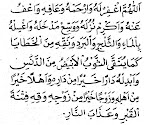 اَللّٰهُمَّ اغْفِرْ لَهُ وَارْحَمْهُ وَعَافِهِ وَاعْفُ
عَنْهُ وَأَكْرِمْ نُزُلَهُ وَوَسِّعْ مَدْخَلَهُ وَاغْسِلْهُ
بِالْمَاءِ وَالثَّلْجِ وَالْبَرَدِ وَنَقِّهِ مِنَ الْخَطَايَا
كَمَا يُنَقَّى الثَّوْبُ الْأَبْيَضُ مِنَ الدَّنَسِ
وَأَبْدِلْهُ دَارًا خَيْرًا مِنْ دَارِهِ وَأَهْلًا خَيْرًا
مِنْ أَهْلِهِ وَزَوْجًا خَيْرًا مِنْ زَوْجِهِ وَقِهِ فِتْنَةَ
الْقَبْرِ وَعَذَابَ النَّارِ.